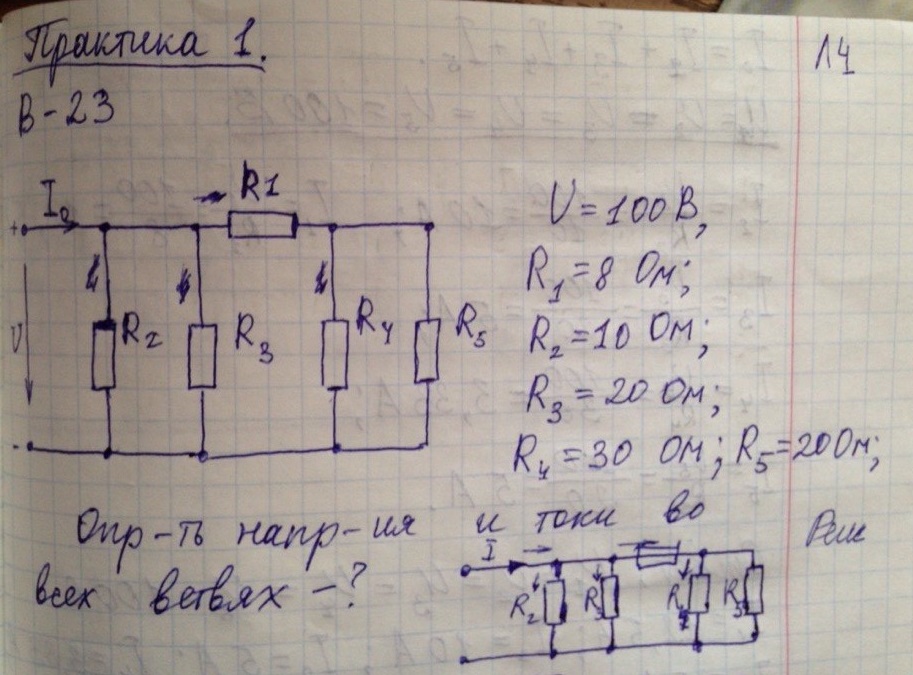 Практика 1.
14
В-23
I₀
R1
+
U
R₂
R₃
R₄
R₅
-
U = 100 В,
R₁ = 8 Ом;
R₂ = 10 Ом;
R₃ = 20 Ом;
R₄ = 30 Ом; R₅ = 20 Ом;
Опр-ть напр-ия и токи во
всех ветвях - ?
I
R₂
R₃
R₄
R₅